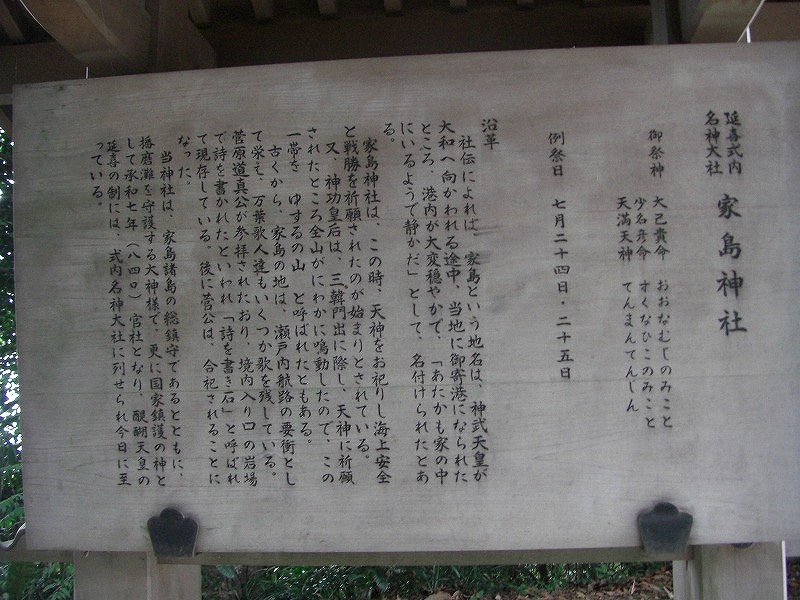 延喜式内
名神大社
家島神社
御祭神 大己貴命 おおなむじのみこと
少名彦命 すくなひこのみこと
天満天神 てんまんてんじん
例祭日 七月二十四日・二十五日
沿革
社伝によれば、家島という地名は、神武天皇が
大和へ向かわれる途中、当地に御寄港になられた
ところ、港内が大変穏やかで、「あたかも家の中
にいるようで静かだ」として、名付けられたとあ
る。
家島神社は、この時、天神をお祀りし海上安全
と戦勝を祈願されたのが始まりとされている。
又、神功皇后は、三韓門出に際し、天神に祈願
されたところ全山がにわかに鳴動したので、この
一帯を ゆするの山 と呼ばれたともある。
古くから、家島の地は、瀬戸内航路の要衝とし
て栄え、万葉歌人達もいくつか歌を残している。
菅原道真公が参拝されたおり、境内入り口の岩場
で詩を書かれたといわれ「詩を書き石」と呼ばれ
て現存している。後に菅公は、合祀されることに
なった。
当神社は、家島諸島の総鎮守であるとともに、
播磨灘を守護する大神様で、更に国家鎮護の神と
して承和七年(八四〇) 官社となり、醍醐天皇の
延喜の制には、式内名神大社に列せられ今日に至
っている。